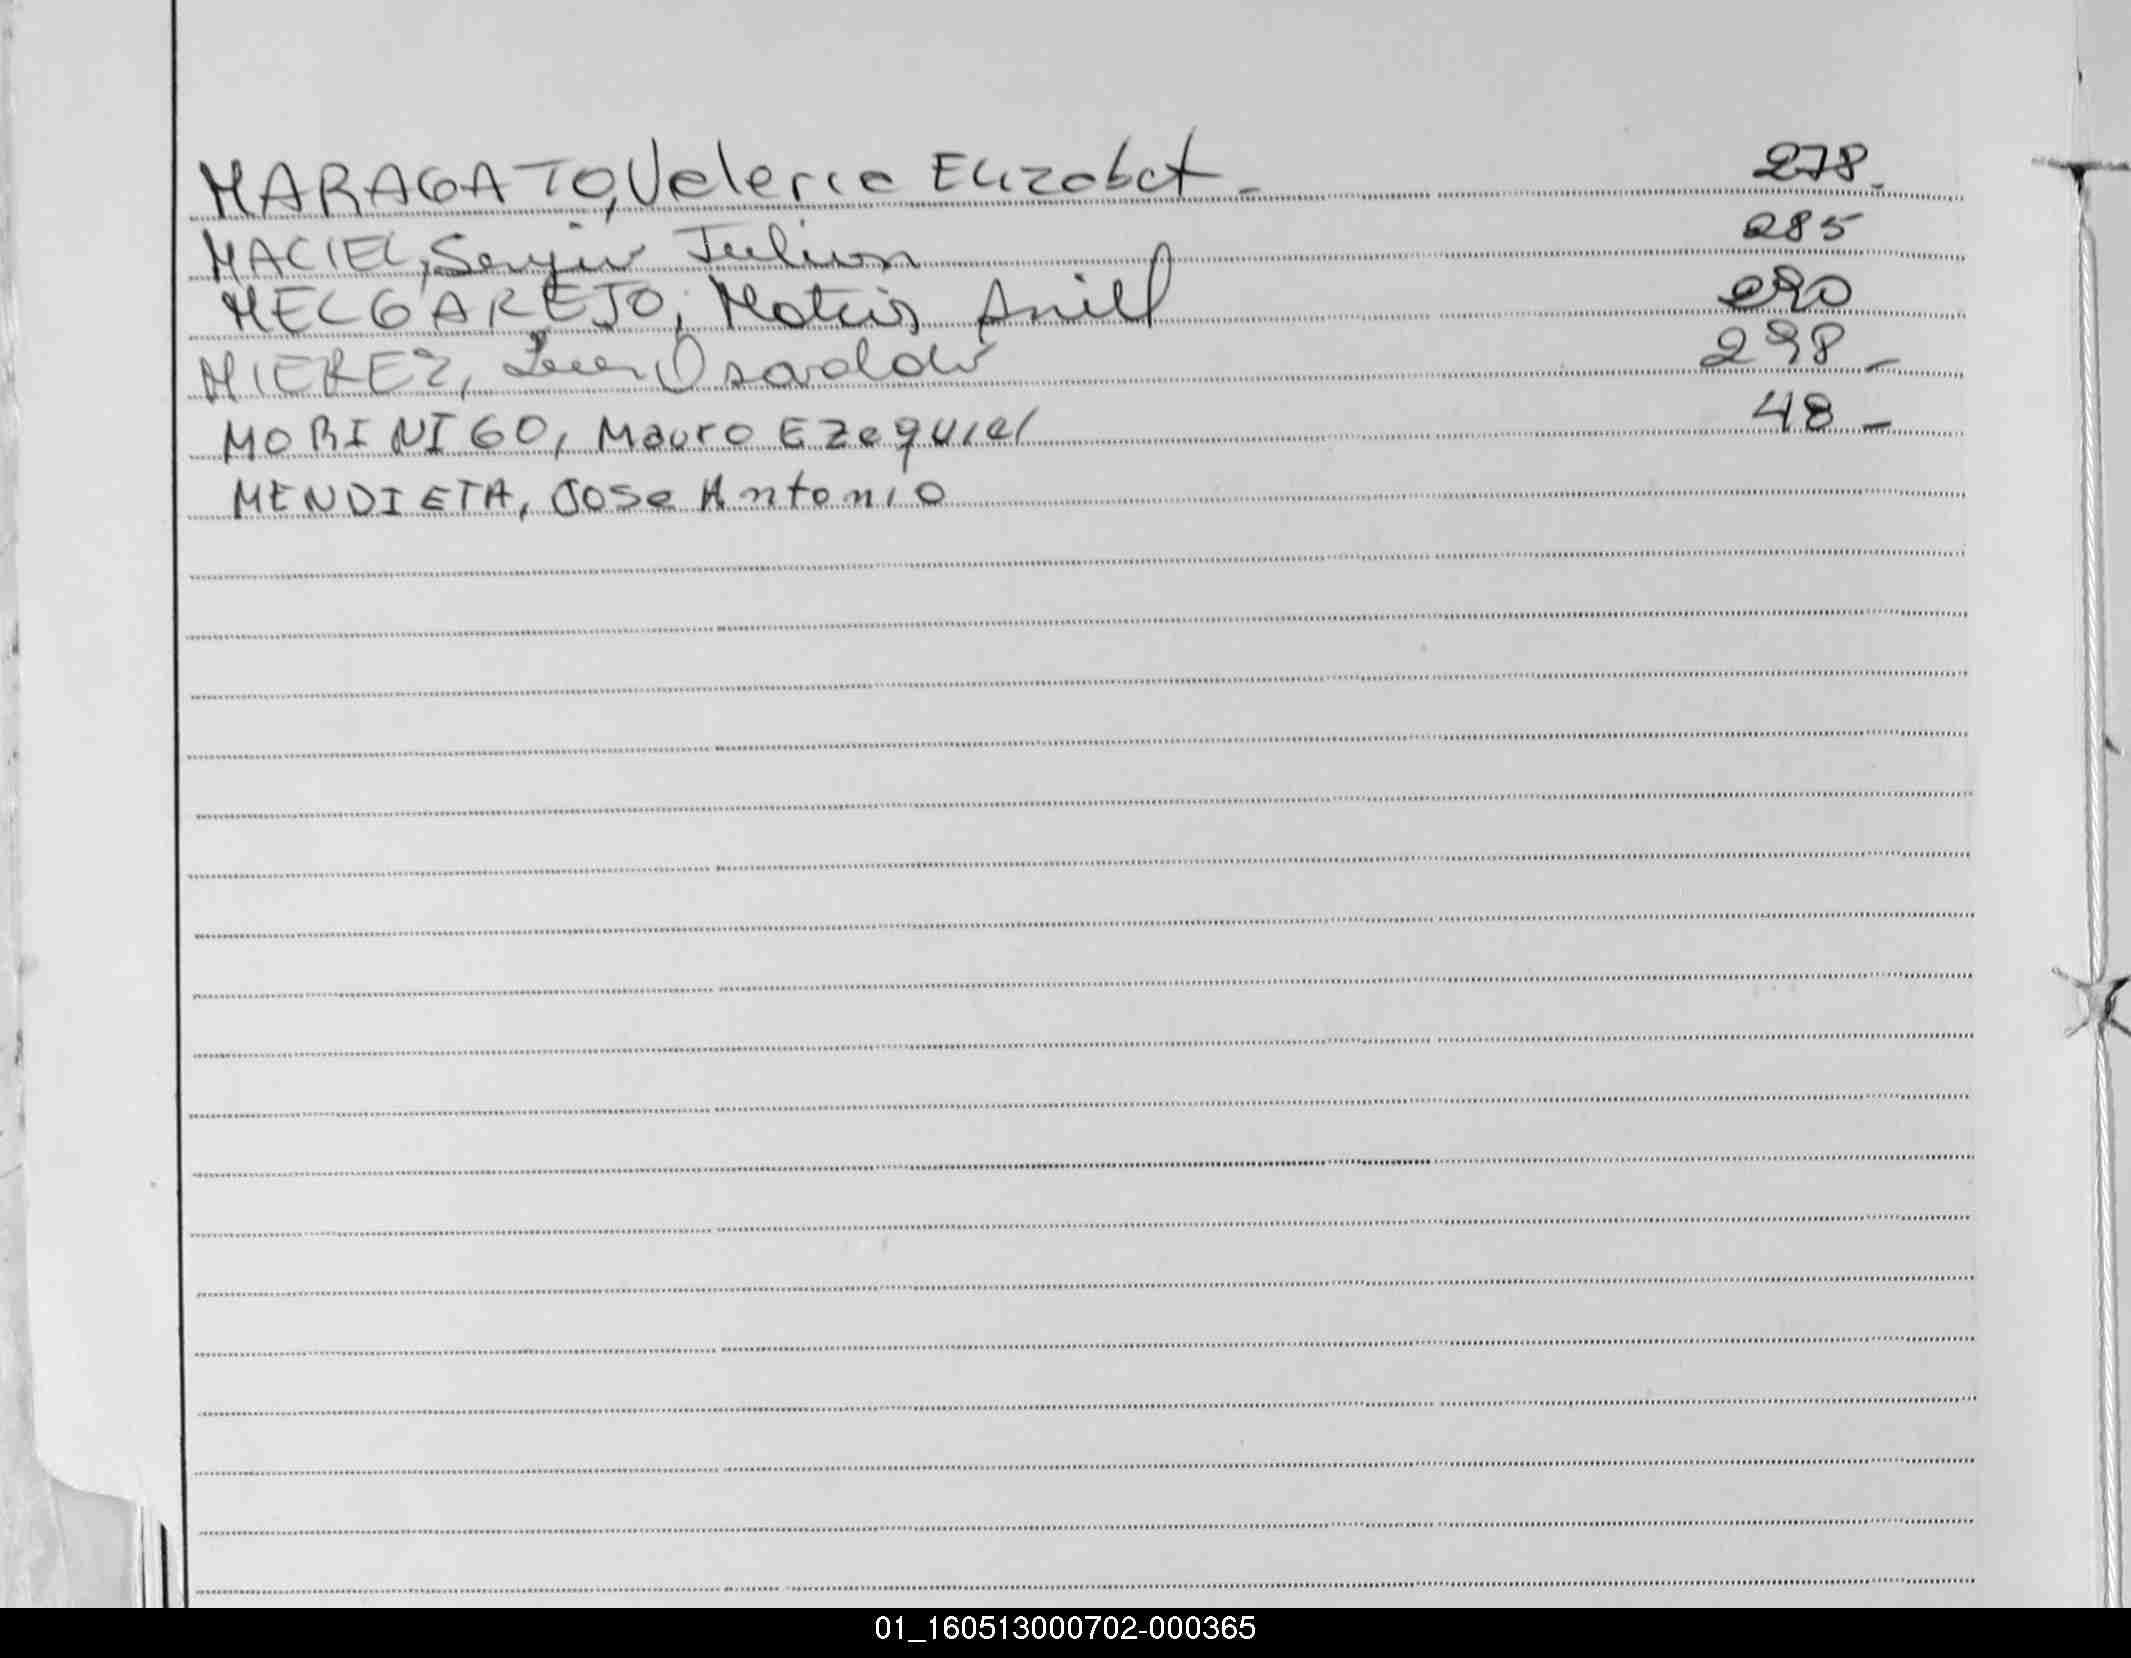 MARAGATO, Valeria Elizabet - 278.
MACIEL, Sergio Julian 285
MELGAREJO, Matias 290
MIEREZ, Juan Osvaldo 298 -
MORINIGO, Mauro Ezequiel 48 -
MENDIETA, Jose Antonio
01_160513000702-000365